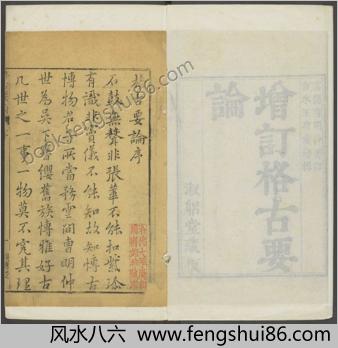 增訂格古要
論
格古要論序
石鼓無聲非張華不能扣紫珍
有識非賓儀不能知故知博古
博物君子所當務雲間曹明仲
世為吳下簪纓舊族博雅好古
凡世之一事一物莫不究其理
风水八六 : www.fengshui86.com